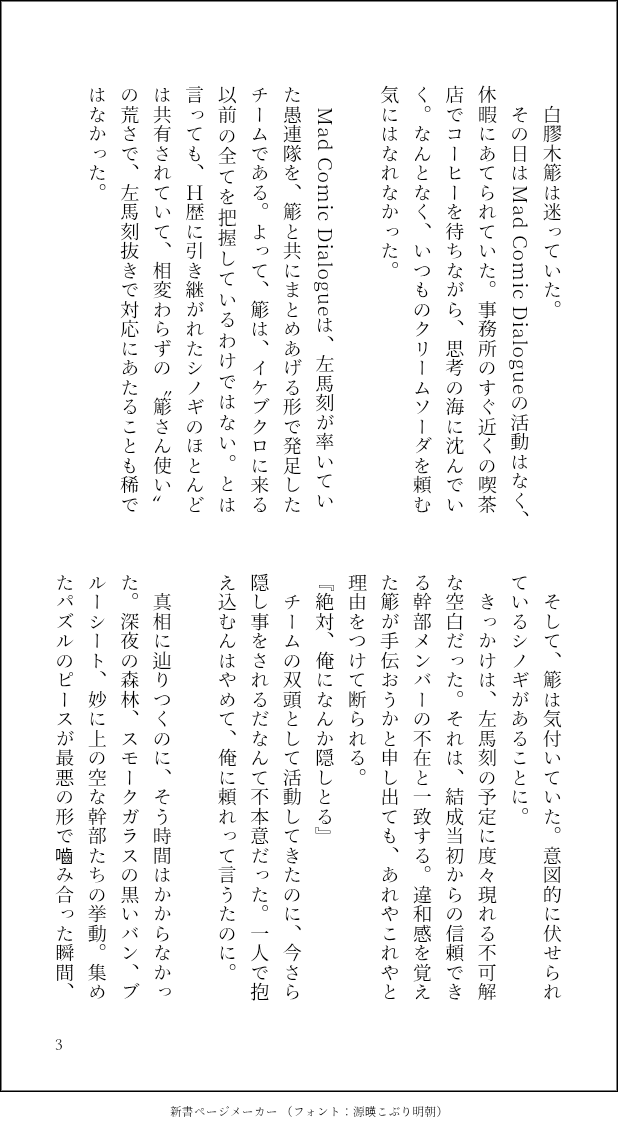 白膠木簓は迷っていた。
その日はMad Comic Dialogueの活動はなく、
休暇にあてられていた。事務所のすぐ近くの喫茶
店でコーヒーを待ちながら、思考の海に沈んでい
く。なんとなく、いつものクリームソーダを頼む
気にはなれなかった。
Mad Comic Dialogueは、左馬刻が率いてい
た愚連隊を、簓と共にまとめあげる形で発足した
チームである。よって、簓は、イケブクロに来る
以前の全てを把握しているわけではない。とは
言っても、H歴に引き継がれたシノギのほとんど
は共有されていて、相変わらずの〝簓さん使い〟
の荒さで、左馬刻抜きで対応にあたることも稀で
はなかった。
そして、簓は気付いていた。意図的に伏せられ
ているシノギがあることに。
きっかけは、左馬刻の予定に度々現れる不可解
な空白だった。それは、結成当初からの信頼でき
る幹部メンバーの不在と一致する。違和感を覚え
た簓が手伝おうかと申し出ても、あれやこれやと
理由をつけて断られる。
『絶対、俺になんか隠しとる』
チームの双頭として活動してきたのに、今さら
隠し事をされるだなんて不本意だった。一人で抱
え込むんはやめて、俺に頼れって言うたのに。
真相に辿りつくのに、そう時間はかからなかっ
た。深夜の森林、スモークガラスの黒いバン、ブ
ルーシート、妙に上の空な幹部たちの挙動。集め
たパズルのピースが最悪の形で嚙み合った瞬間、
3
新書ページメーカー（フォント：源暎こぶり明朝）